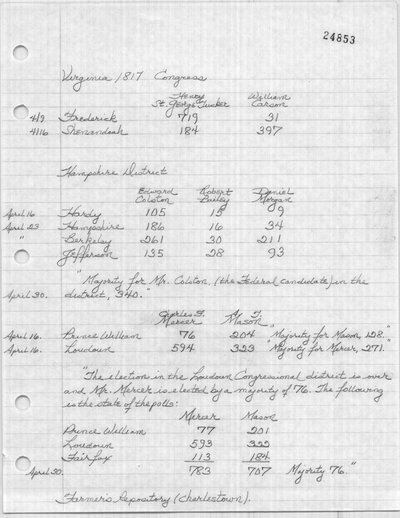 24853
Virginia 1817 Congress
Henry William
St. George Tucker Carson
4/9 Frederick 719 31
4/16 Shenandoah 184 397
Hampshire District
Edward Robert Daniel
Colston Bailey Morgan
April 16 Hardy 105 15 9
April 23 Hampshire 186 16 34
" Berkeley 261 30 211
" Jefferson 135 28 93
"Majority for Mr. Colston, (the Federal candidate) in the
April 30. district, 340."
Charles F.
Mercer Mason
April 16. Prince William 76 204 "Majority for Mason, 128."
April 16. Loudoun 594 323 "Majority for Mercer, 271."
"The election in the Loudoun Congressional district is over
and Mr. Mercer is elected by a majority of 76. The following
is the state of the polls:
Mercer Mason
Prince William 77 201
Loudoun 593 322
Fairfax 113 184
April 30. 783 707 Majority 76."
Farmer's Repository (Charlestown).